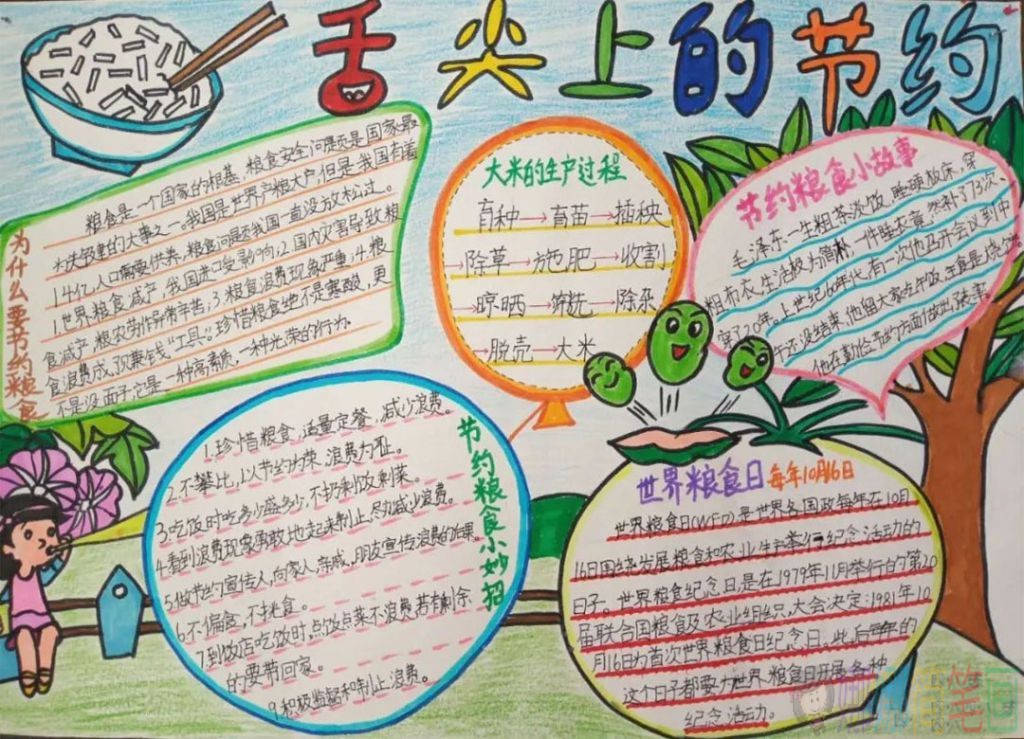 舌尖上的节约
为什么要节约粮食
粮食是一个国家的根基,粮食安全问题是国家最
关键的大事之一。我国是世界产粮大户,但是我国有着
14亿人口需要供养,粮食问题我国一直没放松过。
1.世界粮食减产,我国进口受影响;2.国内灾害导致粮
食减产,粮农劳作异常辛苦;3.粮食浪费现象严重;4.粮
食浪费成了聚集钱“工具”。珍惜粮食绝不是寒酸,更
不是没面子,它是一种高素质,一种光荣的行为。
大米的生产过程
育种→育苗→插秧
→除草→施肥→收割
→晾晒→筛选→除杂
→脱壳→大米
节约粮食小故事
毛泽东一生粗茶淡饭,睡硬板床,穿
粗布衣,生活极为简朴,一件睡衣竟然补了73次、
穿了20年。上世纪60年代,有一次他召开会议到中
午还没结束,他留大家吃午饭,
他在勤俭节约方面做出了表率
节约粮食小妙招
1.珍惜粮食,适量定餐,减少浪费。
2.不攀比,以节约为荣,浪费为耻。
3.吃饭时吃多少盛多少,不扔剩饭剩菜。
4.看到浪费现象勇敢地起来制止,尽力减少浪费。
5.做节约宣传人,向家人、亲戚、朋友宣传浪费的后果。
6.不偏食,不挑食。
7.到饭店吃饭时,点饭点菜不浪费,若有剩余
的要带回家。
9.积极监督和制止浪费。
世界粮食日 每年10月16日
世界粮食日(WFD),是世界各国政每年在10月
16日围绕发展粮食和农业生产举行纪念活动的
日子。世界粮食纪念日,是在1979年11月举行的第20
届联合国粮食及农业组织大会决定:1981年10
月16日为首次世界粮食日纪念日。此后每年的
这个日子都要为世界粮食日开展各种
纪念活动。